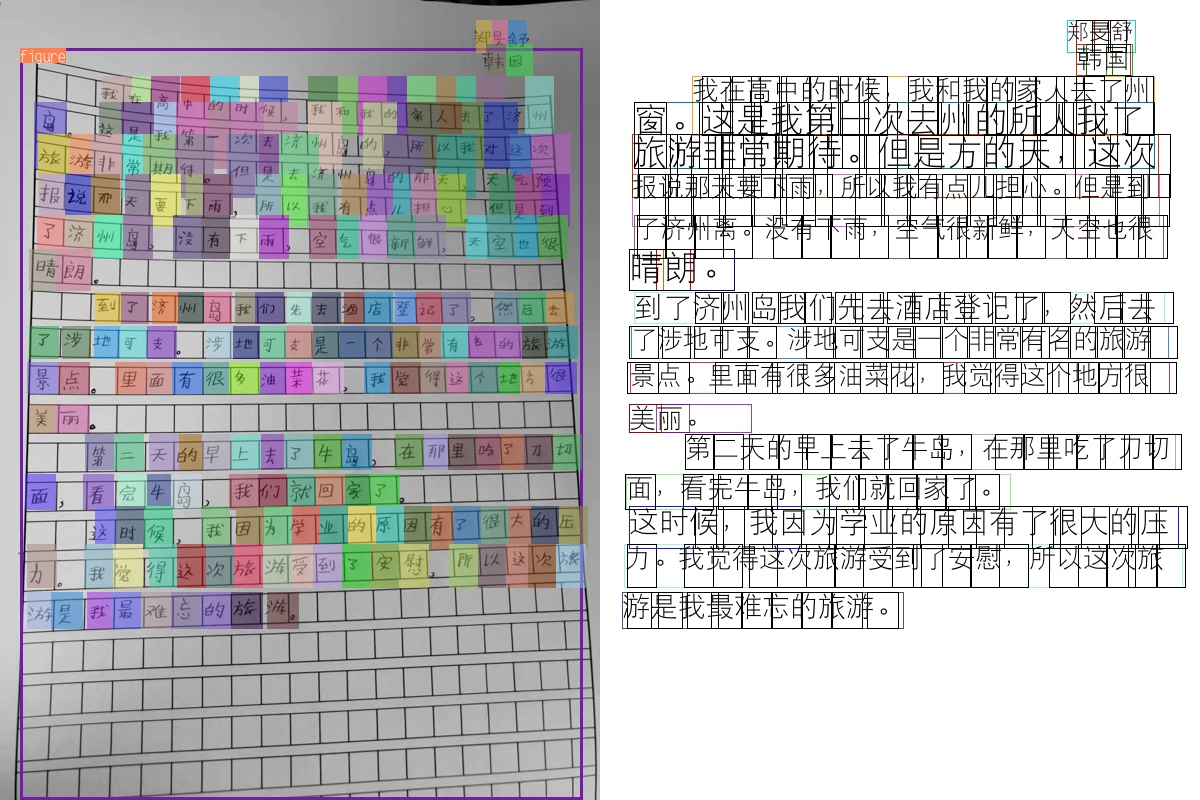 郑旻舒
韩国
figure
我在高中的时候，我和我的家人去了济州
岛。这是我第一次去济州岛的，所以我对这次
旅游非常期待。但是去济州岛的那天，天气预
报说那天要下雨，所以我有点儿担心。但是到
了济州岛，没有下雨，空气很新鲜，天空也很
晴朗。
到了济州岛我们先去酒店登记了，然后去
了涉地可支。涉地可支是一个非常有名的旅游
景点。里面有很多油菜花，我觉得这个地方很
美丽。
第二天的早上去了牛岛，在那里吃了刀切
面，看完牛岛，我们就回家了。
这时候，我因为学业的原因有了很大的压
力。我觉得这次旅游受到了安慰，所以这次旅
游是我最难忘的旅游。
郑旻舒
韩国
我在高中的时候，我和我的家人去了州
窗。这是我第一次去州的所人我了
旅游非常期待。但是方的天，这次
报说那来要下雨，所以我有点儿担心。但是到
了济州离。没有下雨，空气很新鲜，天空也很
晴朗。
到了济州岛我们先去酒店登记了，然后去
了涉地可支。涉地可支是一个非常有名的旅游
景点。里面有很多油菜花，我觉得这个地方很
美丽。
第二天的早上去了牛岛，在那里吃了力切
面，看完牛岛，我们就回家了。
这时候，我因为学业的原因有了很大的压
力。我觉得这次旅游受到了安慰，所以这次旅
游是我最难忘的旅游。